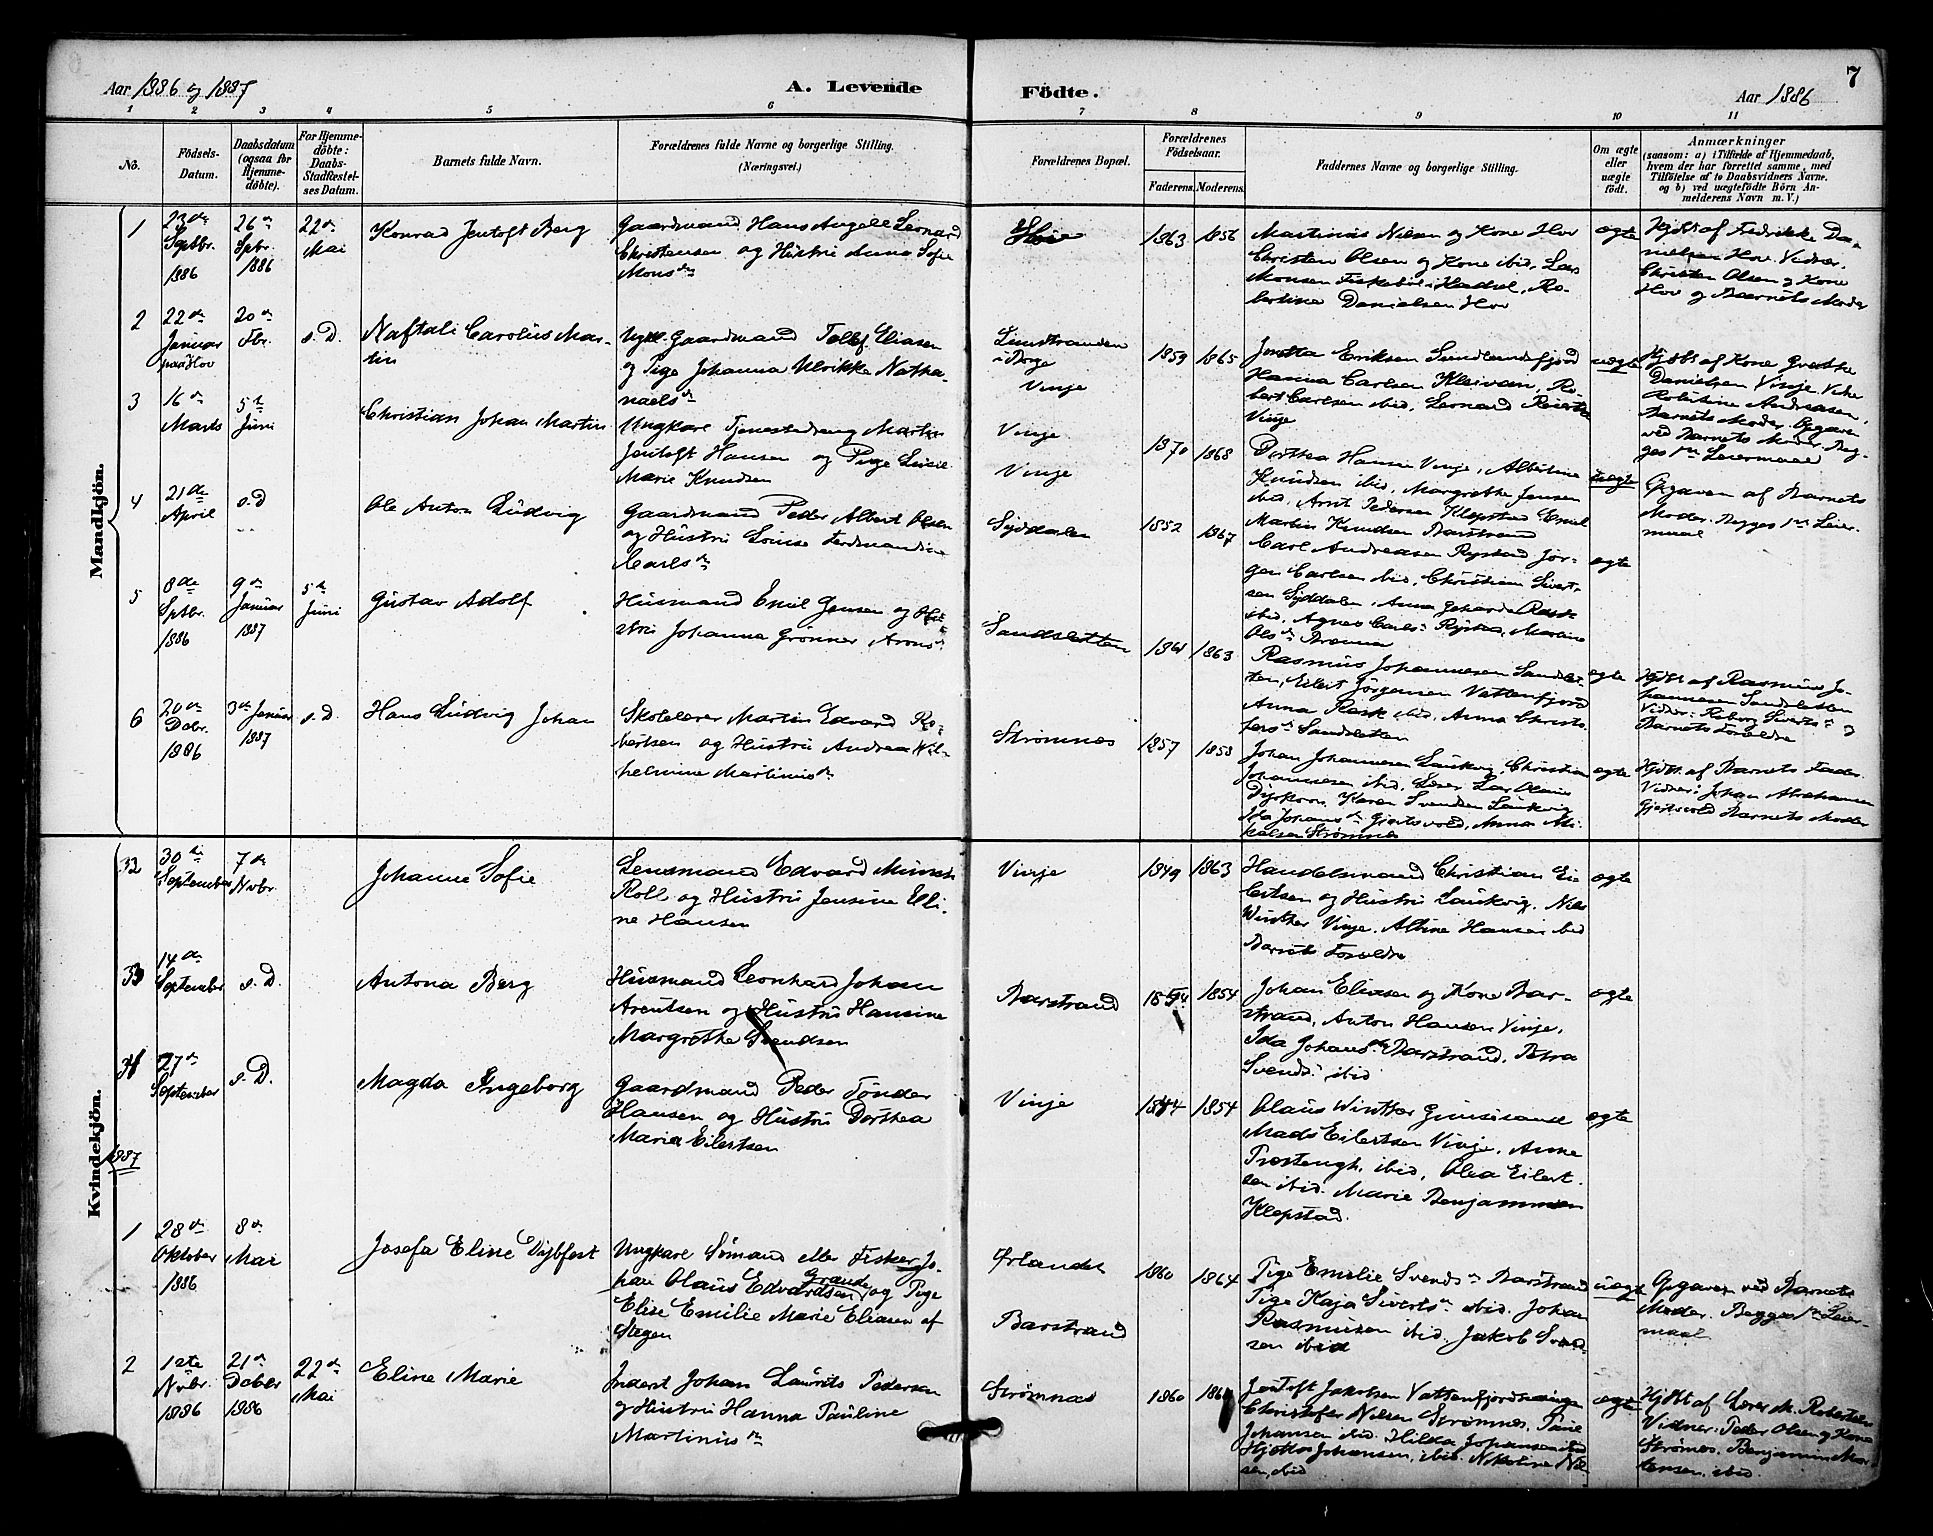 Aar 1886 og 1887
A. Levende
Födte.
Aar 1886
7
1 2 3 4 5 6 7 8 9 10 11
No.
Födsels-Datum.
Daabsdatum (ogsaa for Hjemmedöbte).
For Hjemmedöbte: Daabs-Stadfæstelses Datum.
Barnets fulde Navn.
Forældrenes fulde Navne og borgerlige Stilling.
(Næringsvei.)
Forældrenes Bopæl.
Forældrenes Födselsaar.
Faderens. Moderens.
Faddernes Navne og borgerlige Stilling.
Om ægte eller uægte födt.
Anmærkninger
(saasom: a) i Tilfælde af Hjemmedaab,
hvem der har forrettet samme, med
Tilföielse af to Daabsvidners Navne.
og b) ved uægtefödte Börn Anmelderens Navn m. V.)
Mandkjön.
1
23de Septbr. 1886
26de Spbr. 1886
22de Mai
Konrad Jentoft Berg
Gaardmand Hans Angell Leonard
Christensen og Hustru Anna Sofie
Monsdtr
1863 1856
Martinus Nilsen og Kone Hov
Christen Olsen og Kone ibid, Lars
Monsen Fiskebøl i Hadsel, Robertine
Danielsen Hov
ægte
Hjdbt af Fredrikke Danielsen
Hov. Vidner.
Christen Olsen og Kone
Hov og Barnets Moder
2
22de Januar paa Hov
20de Fbr.
s. D.
Naftali Carolius Martin
Ugkl. Gaardmand Tollef Eliasen
og Pige Johanna Ulrikke Nathanaelsdtr
Limstranden i Borge
Vinje
1859 1865
Jentta Eriksen Sundlandsfjord
Hanna Carlsen Kleivan, Robert
Carlsen ibid, Leonard
Vinje
uægte
Hjdbt af Kone Grethe
Danielsen Vinje. Vidn.
Andreasen,
Barnets Moder. Opgaven
ved Barnets Moder. Begges
1ste Leiermaal
3
16de Marts
5te Juni
Christian Johan Martin
Ungkarl Tjenestedreng Martin
Jentoft Hansen og Pige Luise
Marie Knudsen
Vinje
Vinje
1870 1868
Dorthea Hansen Vinje, Albertine
Knudsen ibid, Margrethe Jensen
ibid, Arnt Pedersen Klepstad Emil
Martin Knudsen Barstrand
uægte
Opgaven af Barnets
Moder. Begges 1ste Leiermaal
4
21de April
s. D
Ole Anton Ludvig
Gaardmand Peder Albert Olsen
og Hustru Louise Ferdinandine
Carlsdtr
Syddalen
1852 1867
Carl Andreasen Rystad Jørgen
Carlsen ibid, Christian Sivertsen
Syddalen, Anna Rask
ibid, Agnes Carlsdtr Rystad, Martine
Olsdtr Brenna
ægte
5
8de Septbr. 1886
9de Januar 1887
5te Juni
Gustav Adolf
Husmand Emil Jensen og Hustru
Johanna Grønner Aronsdtr
Sandsletten
1861 1863
Rasmus Johannesen Sandsletten,
Eilert Jørgensen Vattenfjord
Anna Rask ibid, Anna Christofersdtr
Sandsletten
ægte
Hjdbt. af Rasmus Johannesen
Sandsletten
Vidner: Sivertsdtr og
Barnets Forældre
6
20de Decbr. 1886
3de Januar 1887
s. D.
Hans Ludvig Johan
Skolelærer Martin Edvard Robertsen
og Hustru Andrea Wilhelmine
Martinusdtr
Strømnes
1857 1853
Johan Johannesen Laukvig, Christian
Johannesen ibid, Lærer Lars Olaus
Dyrkorn. Karen Svendsen Laukvig
Ida Johansdtr Gjertsvold, Anna Mikalsen
Strømnes
ægte
Hjdbt. af Barnets Fader
Vidner: Johan Abrahamsen
Gjertsvold Barnets Moder
Kvindekjön.
32
30te September
7de Nvbr.
Johanne Sofie
Lensmand Edvard Munch
Roll og Hustru Jensine Eline
Hansen
Vinje
1849 1863
Handelsmand Christian Eilertsen
og Hustru Laukvig. Nils
Winther Vinje. Albine Hansen ibid
Barnets Forældre
ægte
33
14de September
s. D.
Antona Berg
Husmand Leonhard Johan
Arentsen og Hustru Hansine
Margrethe Svendsen
Barstrand
1854 1854
Johan Eliasen og Kone Barstrand,
Anton Hansen Vinje,
Ida Johansdtr Barstrand, Petra
Svendsdtr ibid
ægte
34
27de September
s. D.
Magda Ingeborg
Gaardmand Peder Tønder
Hansen og Hustru Dorthea
Maria Eilertsen
Vinje
1844 1854
Olaus Winther Grimsirand
Mads Eilertsen Vinje, Anne
ibid, Olea Eilertsen
ibid. Marie Benjaminsen
Klepstad.
ægte
1887
1
28de Oktober 1886
8de Mai
Josefa Eline Dybfest
Ungkarl Sømand eller Fisker Johan
Olaus Edvardsen Grande og Pige
Elise Emilie Marie Eliasen af
Stegen
Ørlandet
Barstrand
1860 1864
Pige Emelie Svendsdtr Barstrand
Pige Kaja Sivertsdtr ibid. Johan
Rasmusen ibid. Jakob Svendsen
ibid
uægte
Opgaven ved Barnets
Moder. Begges 1ste Leiermaal
2
1ste Nvbr. 1886
21de Decbr 1886
22de Mai
Eline Marie
Inderst Johan Laurits Pedersen
og Hustru Hanna Pauline
Martinusdtr
Strømnes
1860
Jentoft Jakobsen Vattenfjord
Christofer Nilsen Strømnes,
Johansen ibid. Hilda Johansen ibid
Johansen, ibid. Nikoline Nilsen,
ibid
ægte
Hjdbt af Lærer M. Robertsen
Vidner: Peder Olsen og Kone
Strømnes. Benjamin Mortensen,
ibid.